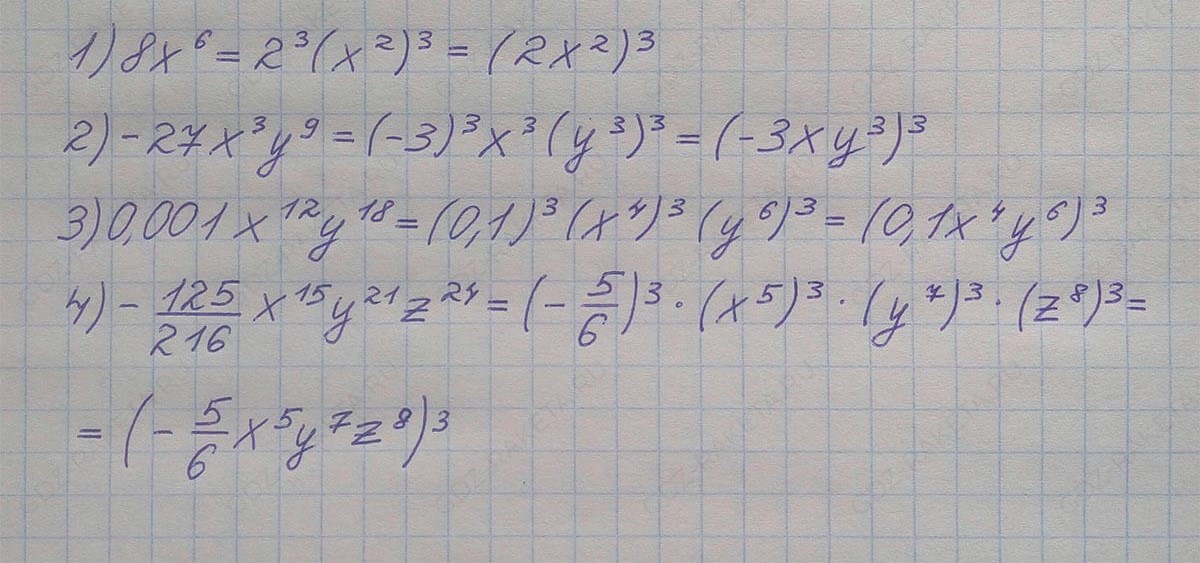 1) 8x⁶ = 2³(x²)³ = (2x²)³
2) -27x³y⁹ = (-3)³x³(y³)³ = (-3xy³)³
3) 0,001x¹²y¹⁸ = (0,1)³(x⁴)³(y⁶)³ = (0,1x⁴y⁶)³
4) -125/216 x¹⁵y²¹z²⁴ = (-5/6)³ · (x⁵)³ · (y⁷)³ · (z⁸)³ =
= (-5/6 x⁵y⁷z⁸)³